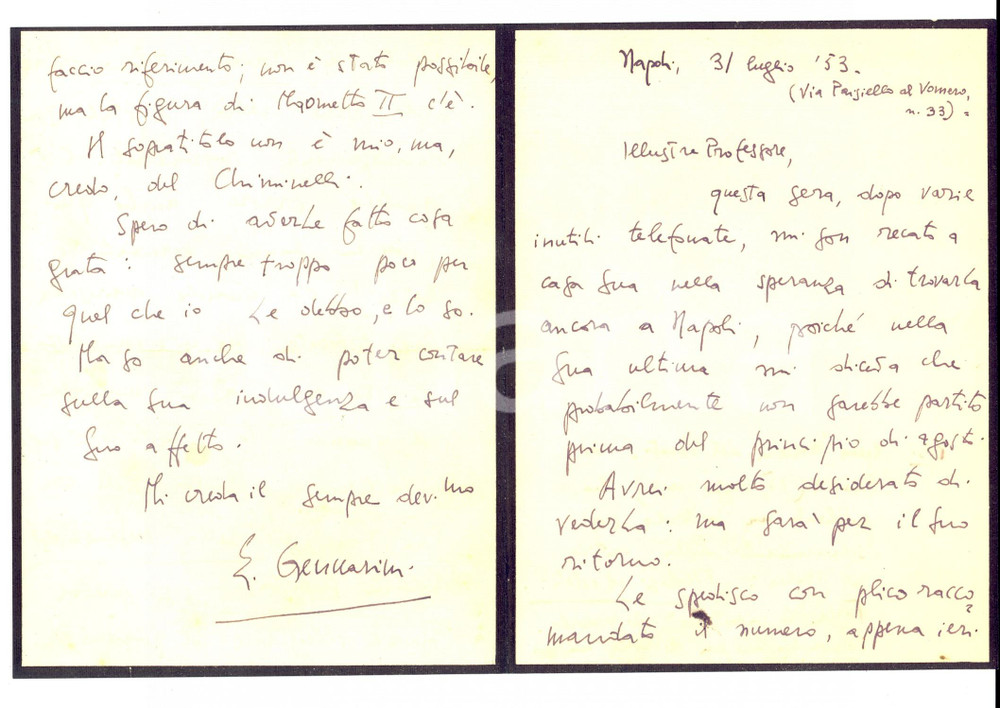 Napoli, 31 luglio '53.
(Via Paisiello al Vomero,
n. 33).
Illustre Professore,
questa sera, dopo varie
inutili telefonate, mi son recato a
casa Sua nella speranza di trovarLa
ancora a Napoli, poiché nella
Sua ultima mi diceva che
probabilmente non sarebbe partito
prima del principio di agosto.
Avrei molto desiderato di
vederLa: ma sarà per il Suo
ritorno.
Le spedisco con plico racco=
mandato il numero, appena ieri
faccio riferimento; non è stato possibile,
ma la figura di Maometto II c'è.
Il sopratitolo non è mio, ma,
credo, del Chiminelli.
Spero di averLe fatto cosa
grata: sempre troppo poco per
quel che io Le debbo, e lo so.
Ma so anche di poter contare
sulla Sua indulgenza e sul
Suo affetto.
Mi creda il sempre dev.mo
E. Gennarini.